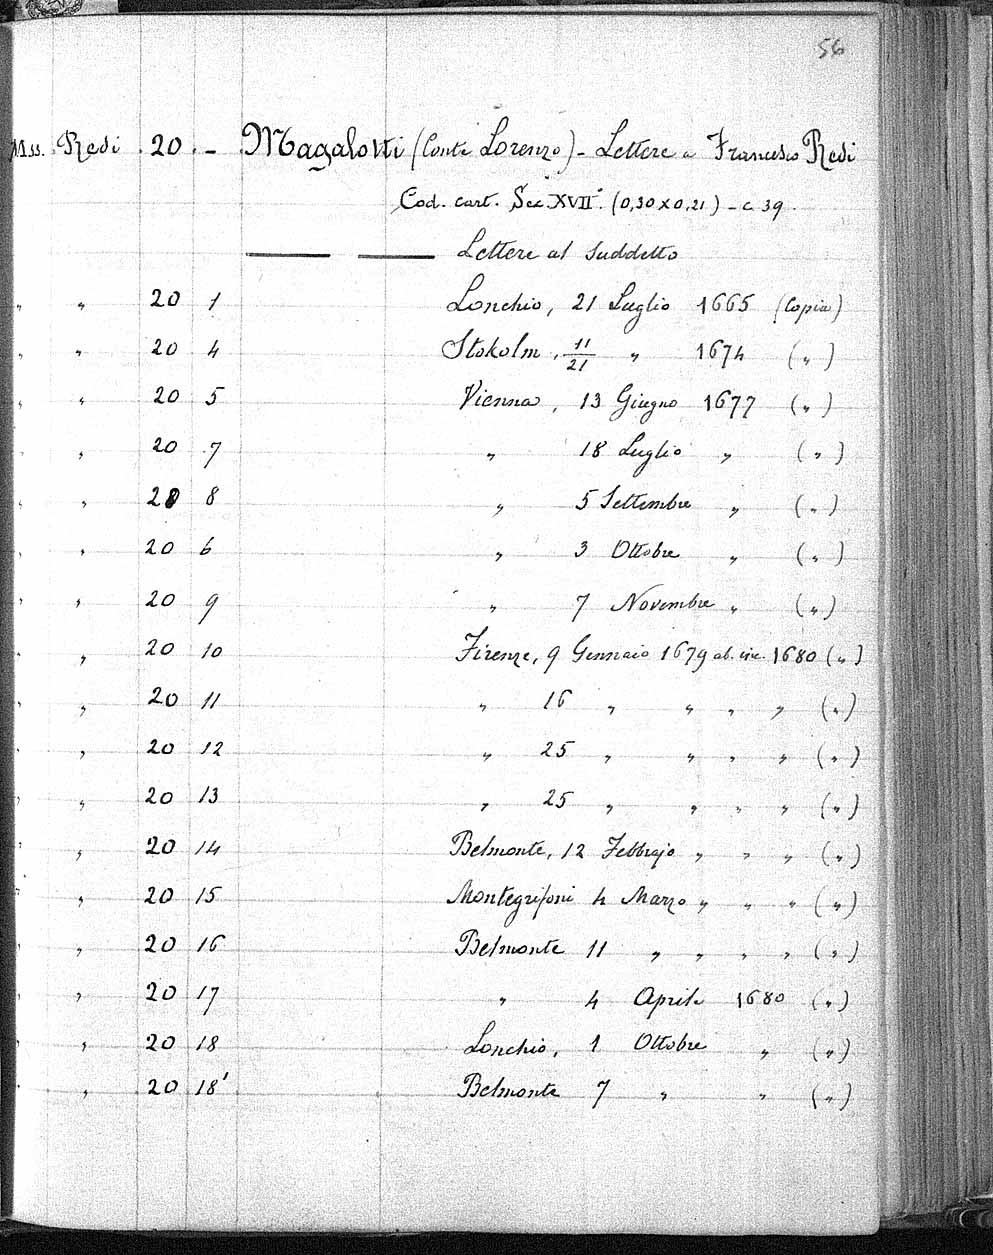 56
Mss. Redi 20. - Magalotti (Conte Lorenzo) - Lettere a Francesco Redi
Cod. cart. Sec. XVII°. (0,30 x 0,21) - c. 39.
Lettere al suddetto
" " 20 1 Lonchio, 21 Luglio 1665 (Copia)
" " 20 4 Stokolm, 11/21 " 1674 (")
" " 20 5 Vienna, 13 Giugno 1677 (")
" " 20 7 " 18 Luglio " (")
" " 20 8 " 5 Settembre " (")
" " 20 6 " 3 Ottobre " (")
" " 20 9 " 7 Novembre " (")
" " 20 10 Firenze, 9 Gennaio 1679 ab. inc. 1680 (")
" " 20 11 " 16 " " " " (")
" " 20 12 " 25 " " " " (")
" " 20 13 " 25 " " " " (")
" " 20 14 Belmonte, 12 Febbrajo " " " (")
" " 20 15 Montegufoni 4 Marzo " " " (")
" " 20 16 Belmonte 11 " " " " (")
" " 20 17 " 4 Aprile 1680 (")
" " 20 18 Lonchio, 1 Ottobre " (")
" " 20 18' Belmonte 7 " " (")